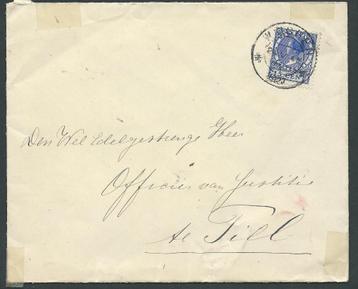 Den Wel Edelgestrenge Heer
Officier van Justitie
te Tiel